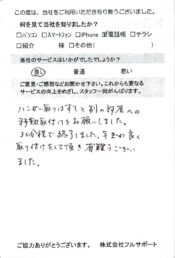 この度は、当社をご利用いただき有り難うございました。
何を見て当社を知りましたか？
□パソコン □スマートフォン □iPhone ☑電話帳 □チラシ
□紹介 様 □その他( )
会社のサービスはいかがでしたでしょうか？
良い 普通 悪い
ご意見・ご感想などお聞かせ下さい。これからも更なる
サービスの向上をめざし、スタッフ一同がんばります。
ハンガー取りはずすと別の部屋への
移動取付けをお願いしました。
30分程で終了しました。手ぎわ良く
取り付けをして頂き有難うござい
ました。
ご協力ありがとうございます。 株式会社フルサポート